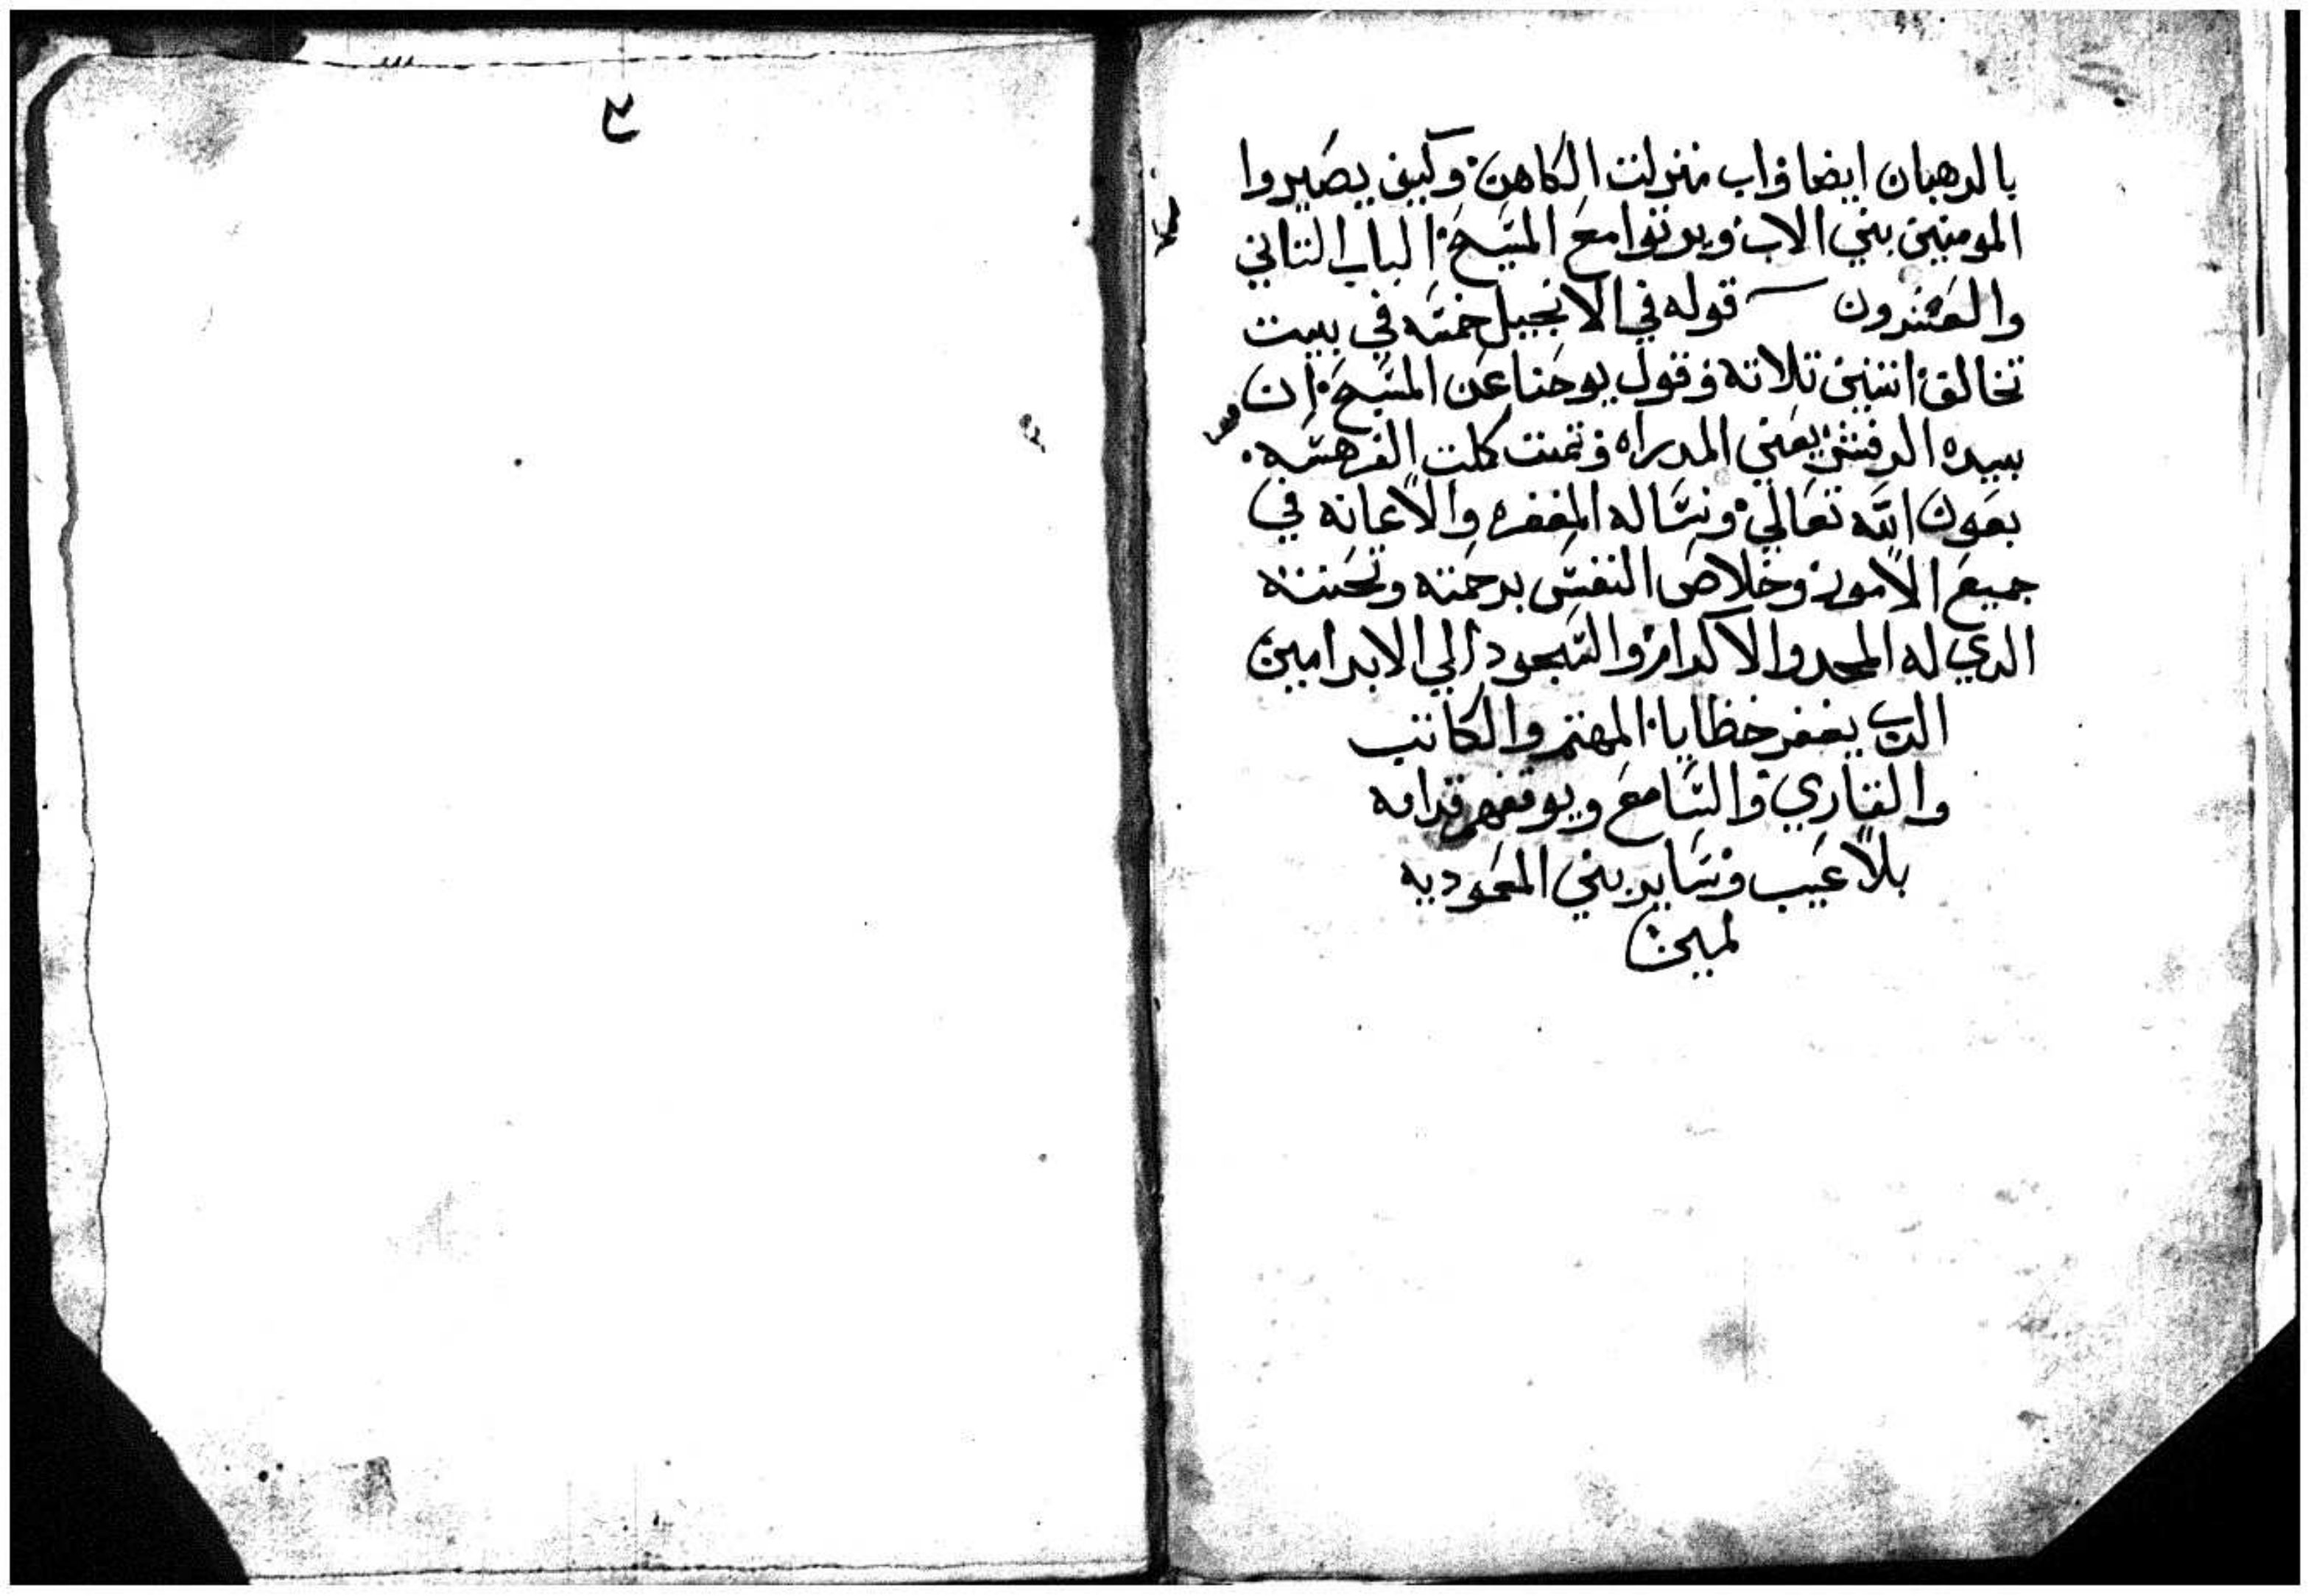 بالرهبان ايضا واب منزلت الكاهن وكيف يصيروا
المومنين بني الاب ويرتوا مع المسيح الباب التاني
والعشرون قوله في الانجيل خمسه في بيت
تخالف اتنين تلاته وقول يوحنا عن المسيح ان
بيده الرفش يعني المدراه وتمت كلت الفرهسه
بعون الله تعالي ونساله المغفره والاعانه في
جميع الامور وخلاص النفس برحمته وتحننه
الدي له المجد والاكرام والسجود الي الابد امين
الرب يغفر خطايا المهتم والكاتب
والقاري والسامع ويوقفهم قدامه
بلا عيب وساير بني المعموديه
امين